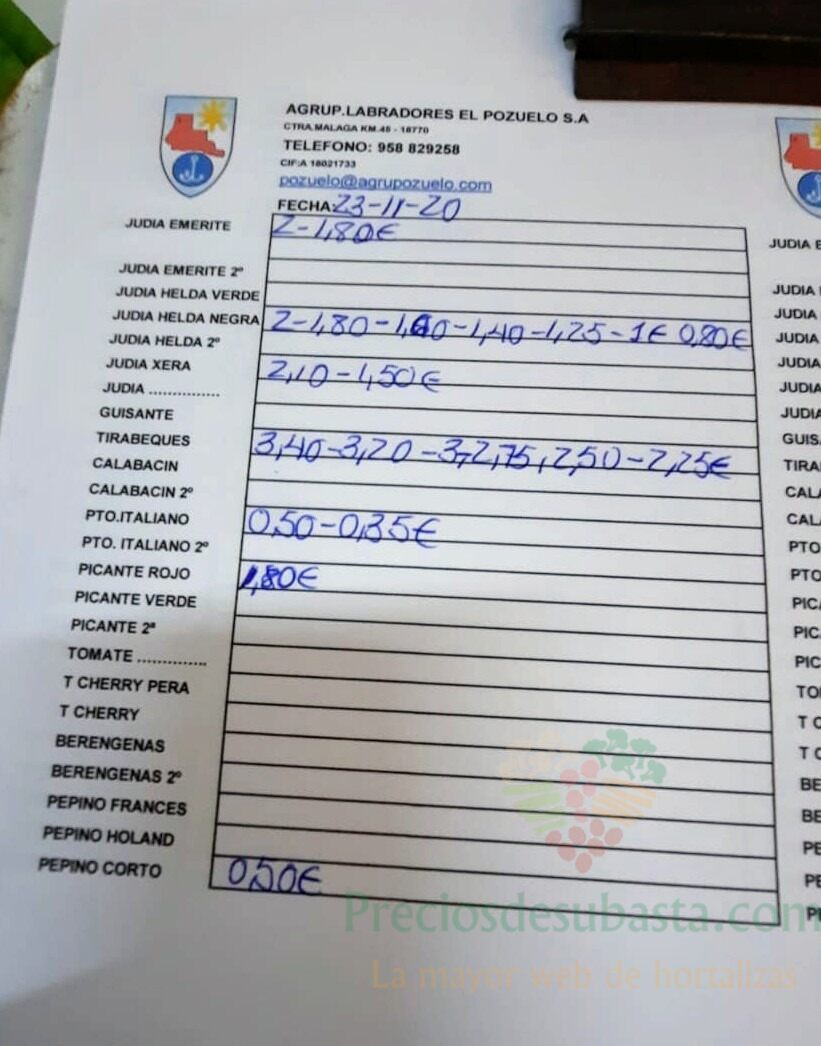 AGRUP.LABRADORES EL POZUELO S.A
CTRA.MALAGA KM.45 - 18770
TELEFONO: 958 829258
CIF:A 18021733
pozuelo@agrupozuelo.com
FECHA: 23-11-20
JUDIA EMERITE 2-1,80€
JUDIA EMERITE 2º
JUDIA HELDA VERDE
JUDIA HELDA NEGRA 2-1,80-1,60-1,40-1,25-1€ 0,80€
JUDIA HELDA 2º
JUDIA XERA 2,10-1,50€
JUDIA ...............
GUISANTE
TIRABEQUES 3,40-3,20-3,2,75,2,50-2,25€
CALABACIN
CALABACIN 2º
PTO.ITALIANO 0,50-0,35€
PTO. ITALIANO 2º
PICANTE ROJO 1,80€
PICANTE VERDE
PICANTE 2ª
TOMATE ..............
T CHERRY PERA
T CHERRY
BERENGENAS
BERENGENAS 2º
PEPINO FRANCES
PEPINO HOLAND
PEPINO CORTO 0,50€
JUDIA E
JUDIA
JUDIA
JUDIA
JUDIA
JUDIA
JUDIA
GUIS
TIRA
CALA
CAL
PTO
PTO
PICA
PIC
PIC
TO
T C
T C
BE
BE
PE
PE
P
Preciosdesubasta.com
La mayor web de hortalizas